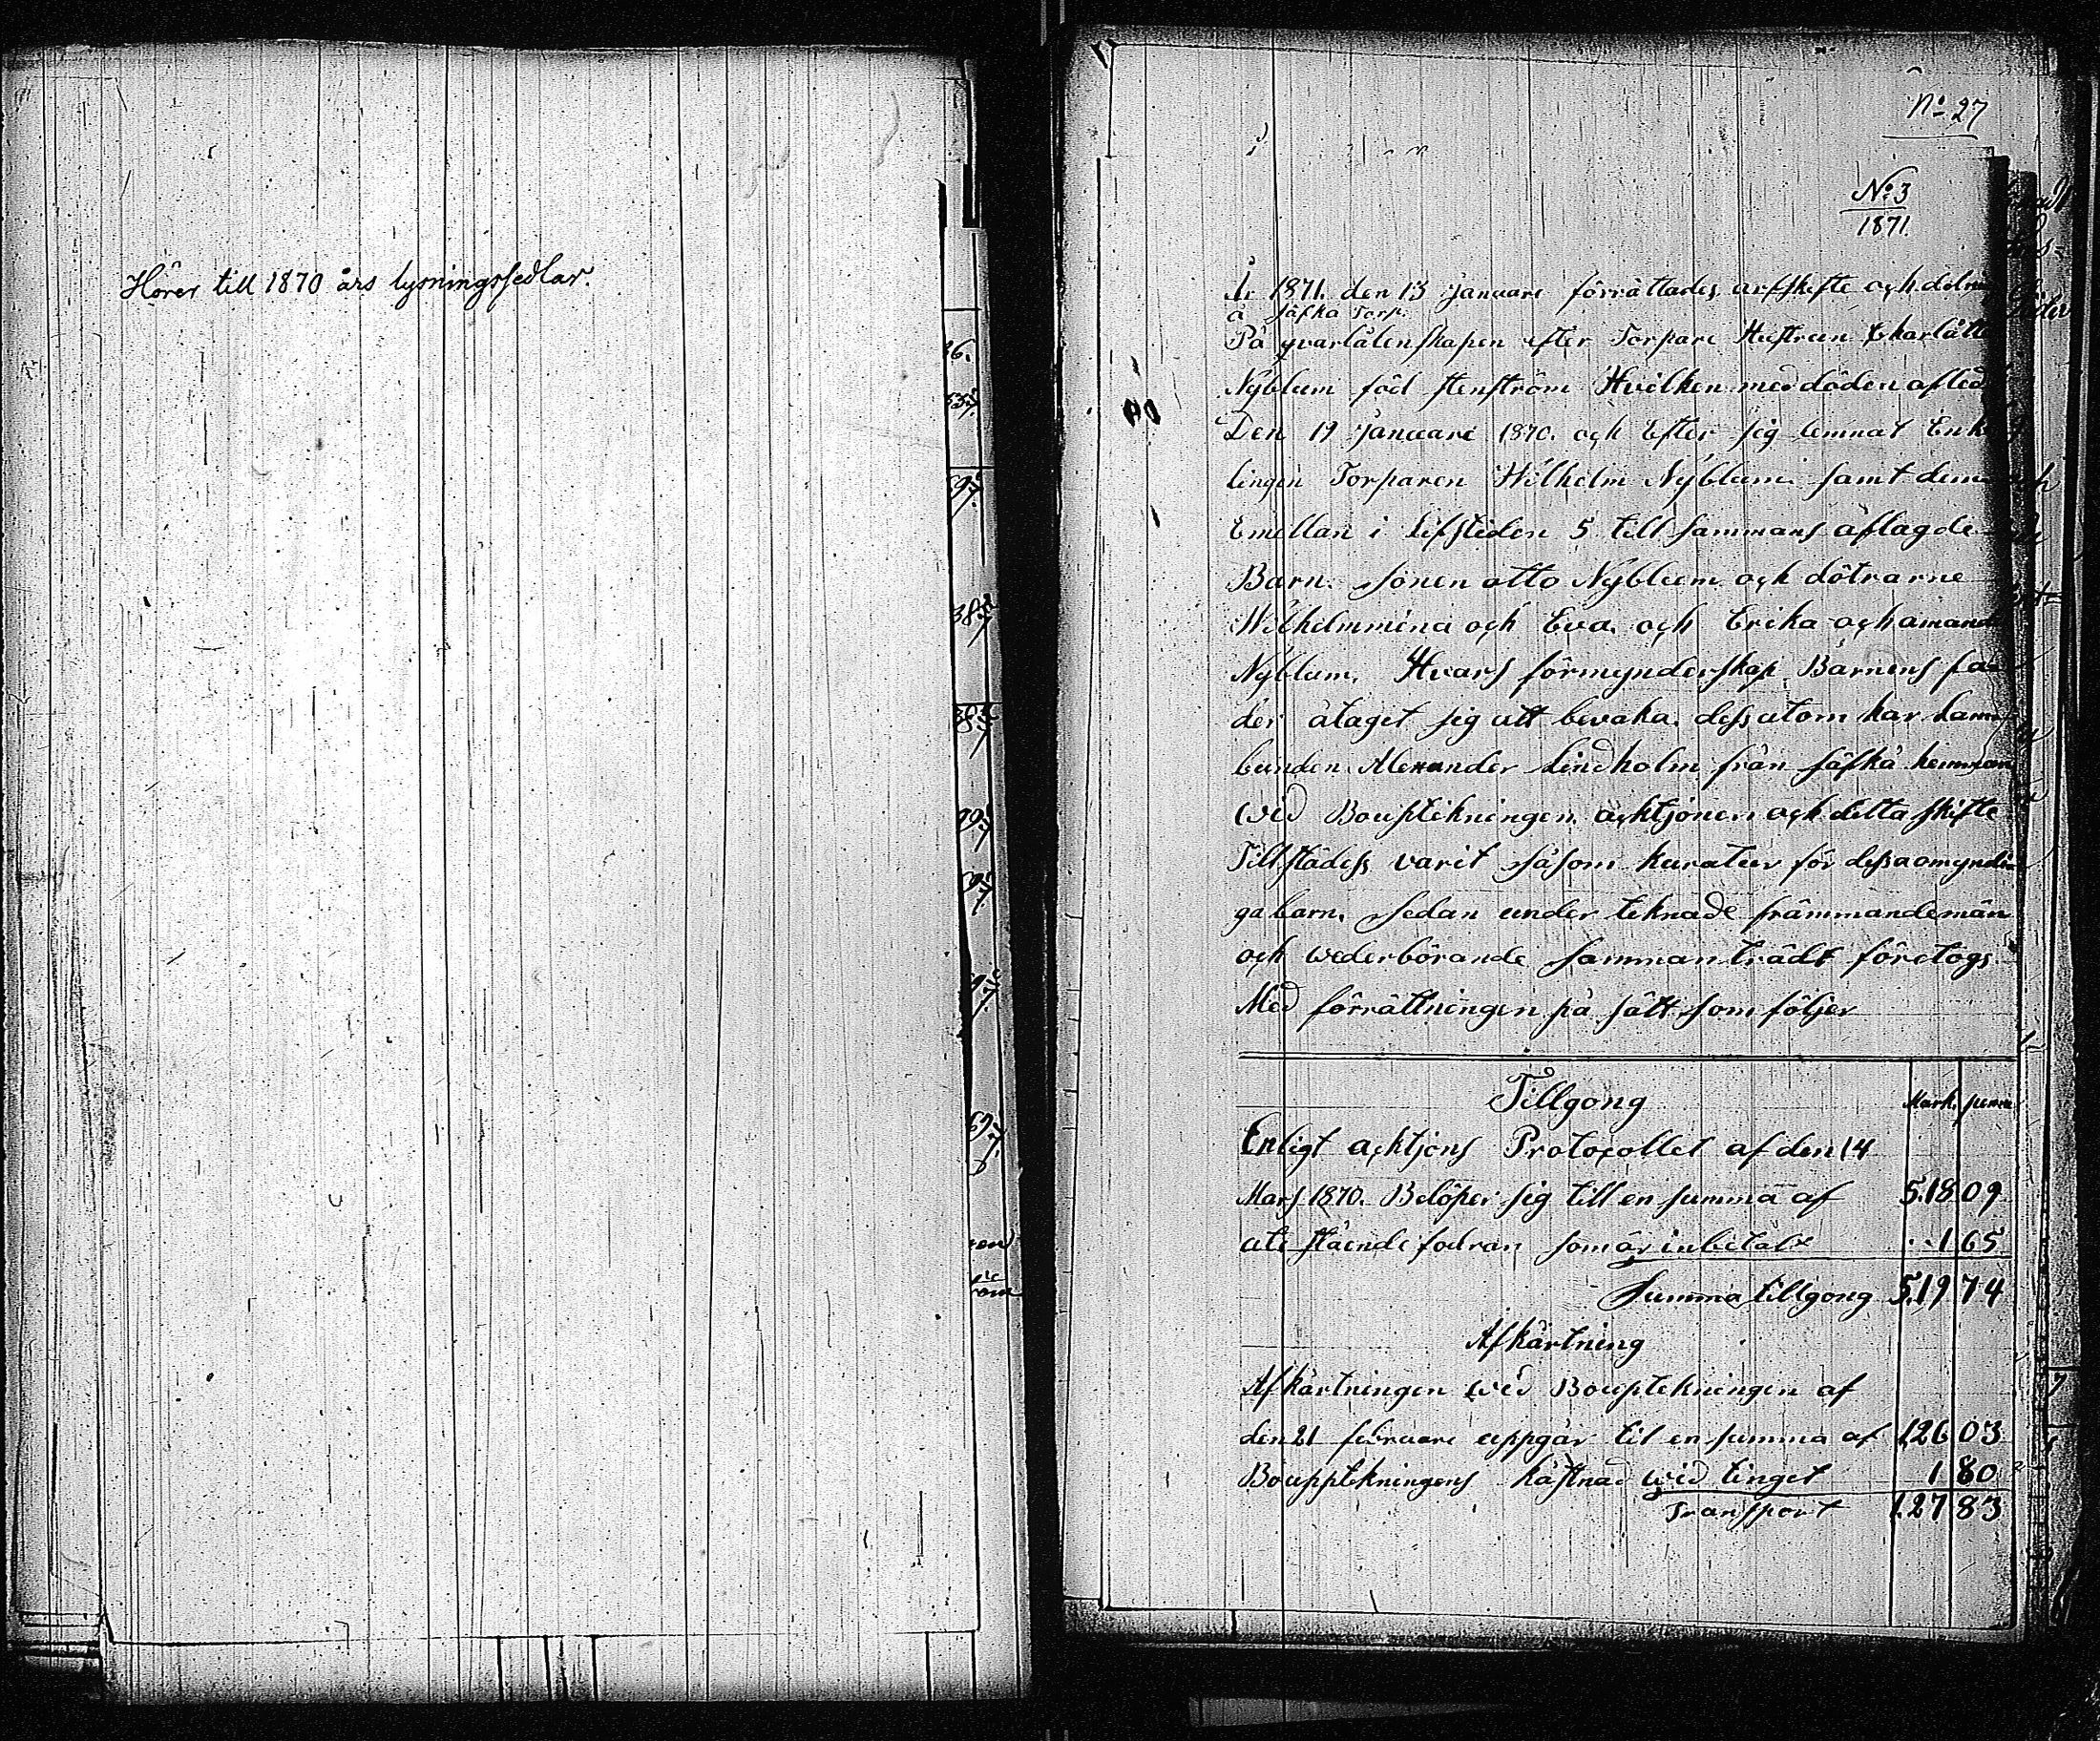 Hörer till 1870 års lysningssedlar.
No 27
No 3
1871
År 1871. den 13 Januari förrättades arfskifte och delni
å Säfkå Torp.
På qvarlåtenskapen efter Torpare Hustrun Charlåtte
Nyblum föd Stenström Hvilken med döden afled
Den 19 Januari 1870. och Efter sig lemnat Enk
lingen Torparen Wilhelm Nyblum samt dem
Emellan i Lifstiden 5 till sammans aflagde
Barn. Sonen Otto Nyblum och dötrarne
Wilhelmmina och Eva och Erika och amand
Nyblum, Hvars förmynderskap Barnens fa
der åtaget sig att bevaka. dessutom har Lamp
bunden Alexander Lindholm från Säfkå hemman
wid Bouptekningen acktjonen och detta skifte
Tillstädess varit såsom kuratur för dessa omyndi
ga barn, Sedan under teknade främmande män
och wederbörande Sammanträdt företogs
Med förrättningen på sätt som följer
Tillgong Mark penni
Enligt acktjons Protocollet af den 14
Mars 1870. Belöper sig till en summa af 518 09
ute stående fodran som är inbetalt 1 65
Summa tillgong 519 74
Afkårtning
Afkårtningen wid Bouptekningen af
den 21 februari uppgår til en summa af 126 03
Boupptekningens kåstnad wid tinget 1 80
Transport 127 83